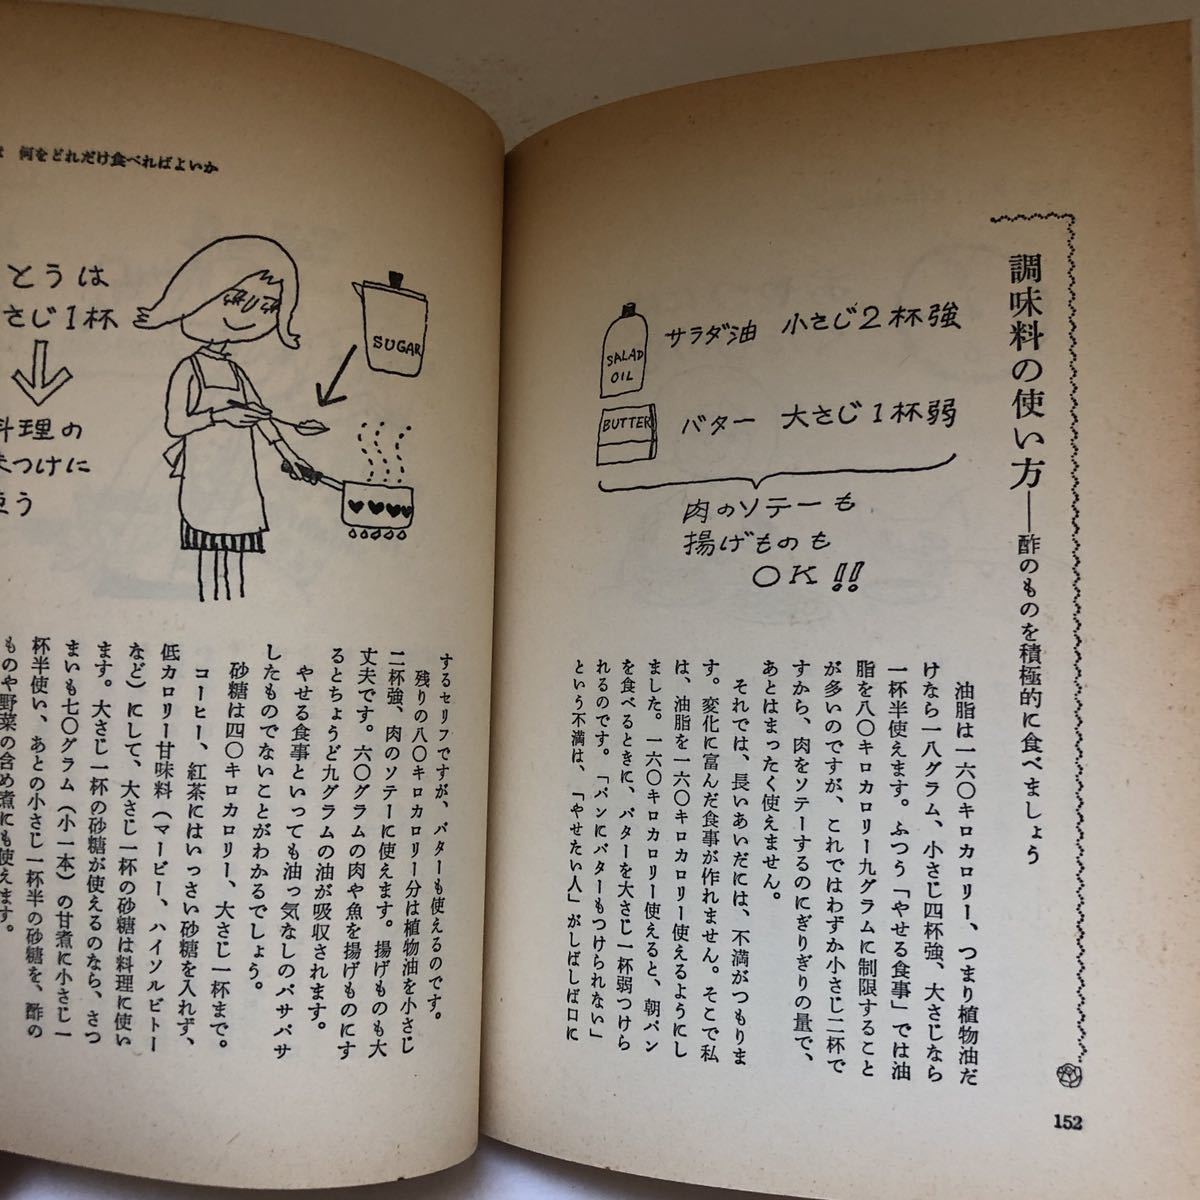 調味料の使い方――酢のものを積極的に食べましょう
SALAD
OIL
サラダ油 小さじ2杯強
BUTTER
バター 大さじ1杯弱
肉のソテーも
揚げものも
OK!!
油脂は一六〇キロカロリー、つまり植物油だ
けなら一八グラム、小さじ四杯強、大さじなら
一杯半使えます。ふつう「やせる食事」では油
脂を八〇キロカロリー九グラムに制限すること
が多いのですが、これではわずか小さじ二杯で
すから、肉をソテーするのにぎりぎりの量で、
あとはまったく使えません。
それでは、長いあいだには、不満がつもりま
す。変化に富んだ食事が作れません。そこで私
は、油脂を一六〇キロカロリー使えるようにし
ました。一六〇キロカロリー使えると、朝パン
を食べるときに、バターを大さじ一杯弱つけら
れるのです。「パンにバターもつけられない」
という不満は、「やせたい人」がしばしば口に
152
何をどれだけ食べればよいか
とうは
さじ1杯
料理の
味つけに
使う
SUGAR
するセリフですが、バターも使えるのです。
残りの八〇キロカロリー分は植物油を小さじ
二杯強、肉のソテーに使えます。揚げものも大
丈夫です。六〇グラムの肉や魚を揚げものにす
るとちょうど九グラムの油が吸収されます。
やせる食事といっても油っ気なしのパサパサ
したものでないことがわかるでしょう。
砂糖は四〇キロカロリー、大さじ一杯まで。
コーヒー、紅茶にはいっさい砂糖を入れず、
低カロリー甘味料（マービー、ハイソルビトー
など）にして、大さじ一杯の砂糖は料理に使い
ます。大さじ一杯の砂糖が使えるのなら、さつ
まいも七〇グラム（小一本）の甘煮に小さじ一
杯半使い、あとの小さじ一杯半の砂糖を、酢の
ものや野菜の含め煮にも使えます。